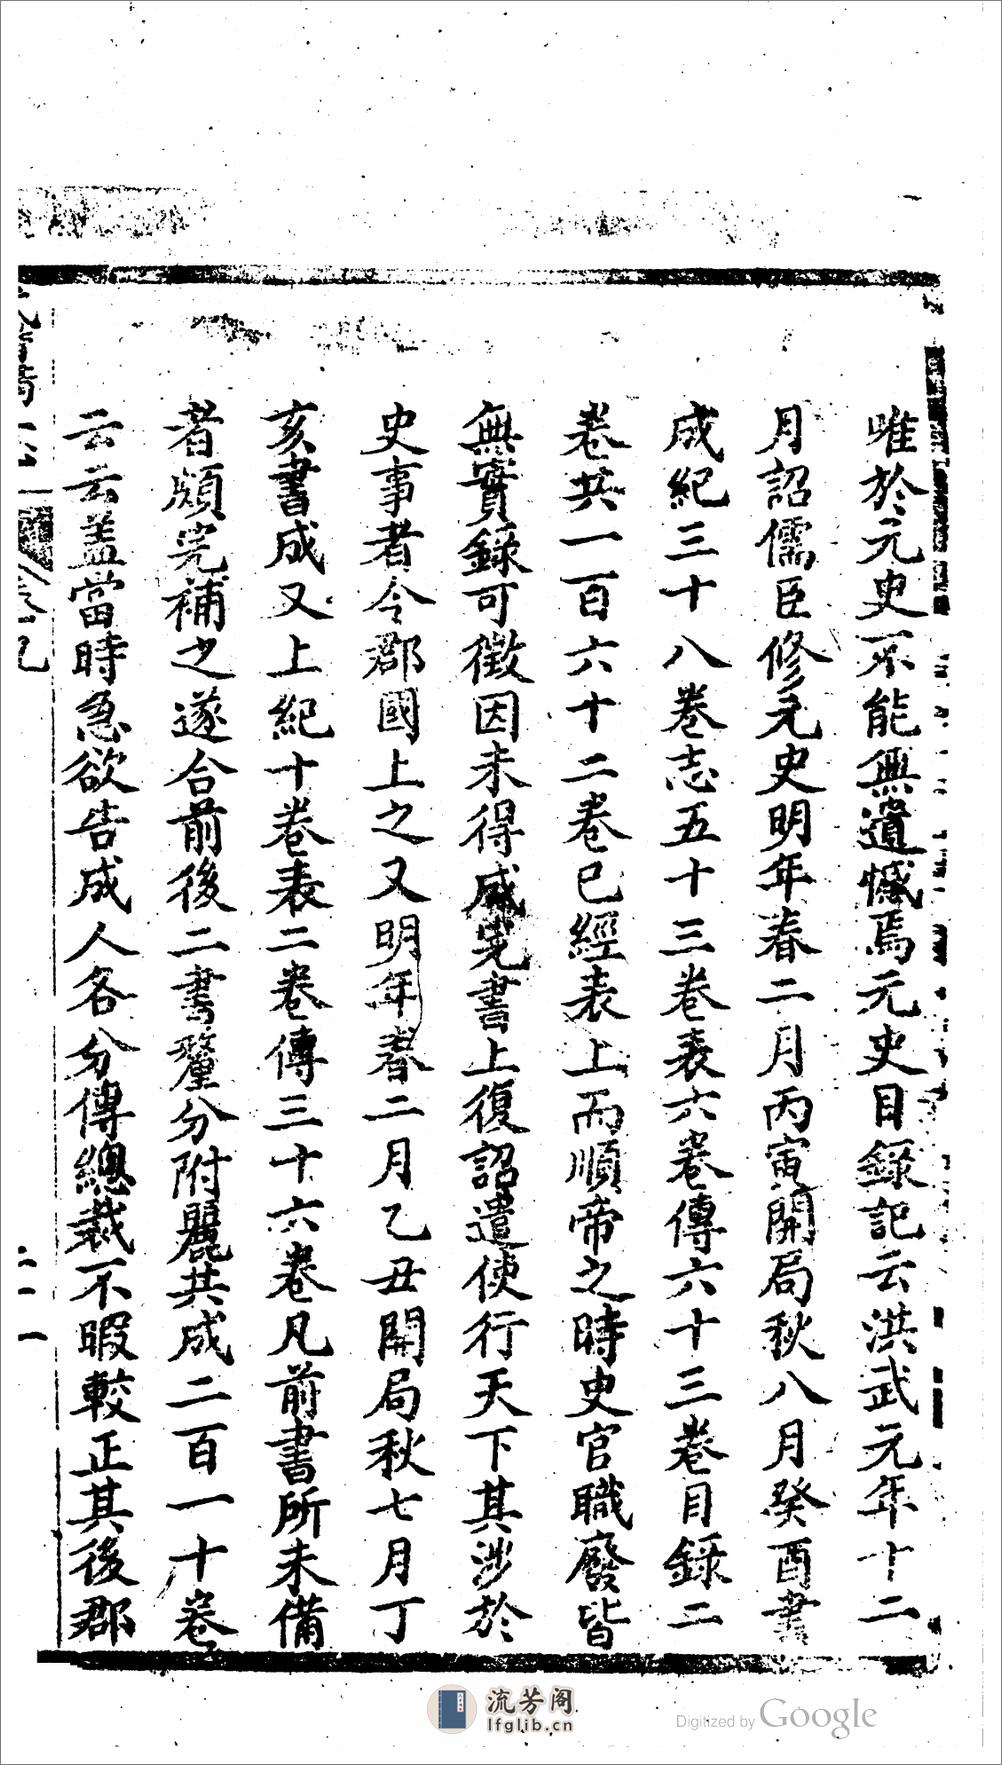 唯於元史不能無遺憾焉元史目録記云洪武元年十二
月詔儒臣修元史明年春二月丙寅開局秋八月癸酉書
成紀三十八卷志五十三卷表六卷傳六十三卷目録二
卷共一百六十二卷已經表上而順帝之時史官職廢皆
無實録可徵因未得成完書上復詔遣使行天下其涉於
史事者令郡國上之又明年春二月乙丑開局秋七月丁
亥書成又上紀十卷表二卷傳三十六卷凡前書所未備
者頗完補之遂合前後二書釐分附麗共成二百一十卷
云云盖當時急欲告成人各分傳總裁不暇較正其後郡
流芳阁
lfglib.cn
Digitized by Google